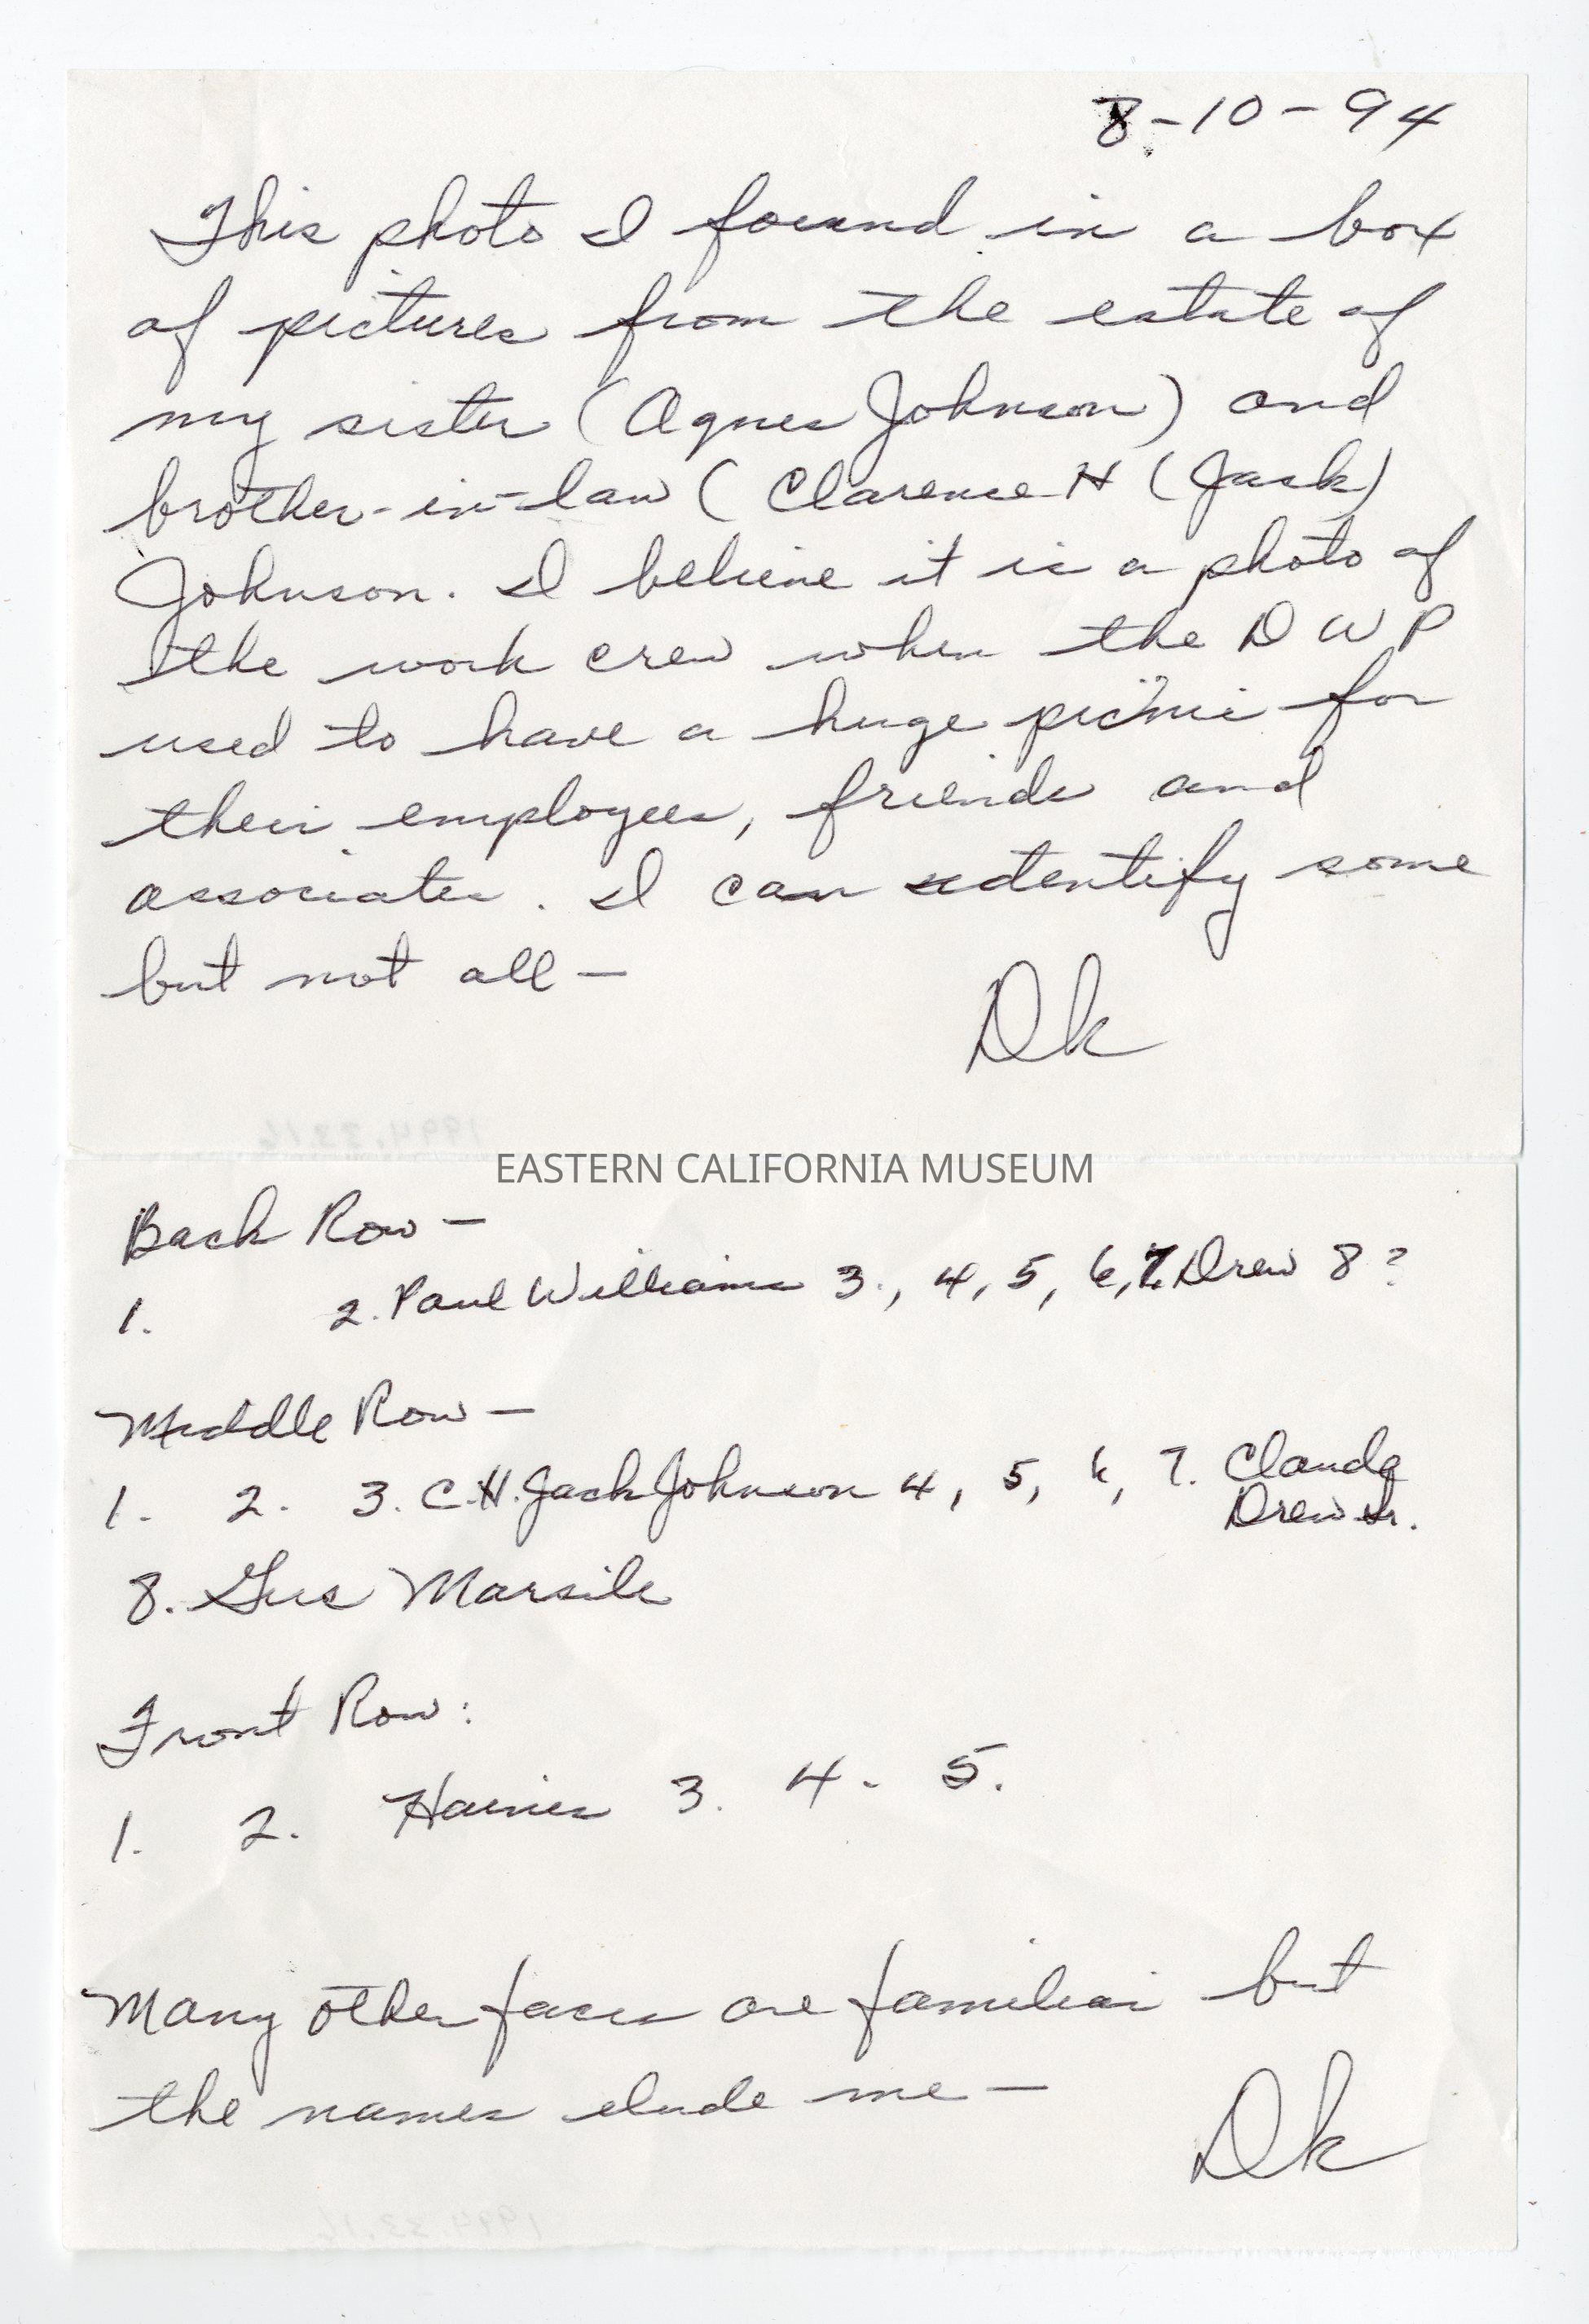 8-10-94
This photo I found in a box
of pictures from the estate of
my sister (Agnes Johnson) and
brother-in-law (Clarence H (Jack)
Johnson. I believe it is a photo of
the work crew when the DWP
used to have a huge picnic for
their employees, friends and
associates. I can identify some
but not all —
Dk
1994.33.16
EASTERN CALIFORNIA MUSEUM
Back Row —
1. 2. Paul Williams 3., 4, 5, 6, 7. Drew 8 ?
Middle Row —
1. 2. 3. C.H. Jack Johnson 4, 5, 6, 7. Claude
Drew Sr.
8. Gus Marsile
Front Row:
1. 2. Haines 3. 4. 5.
Many other faces are familiar but
the names elude me —
Dk
1994.33.16